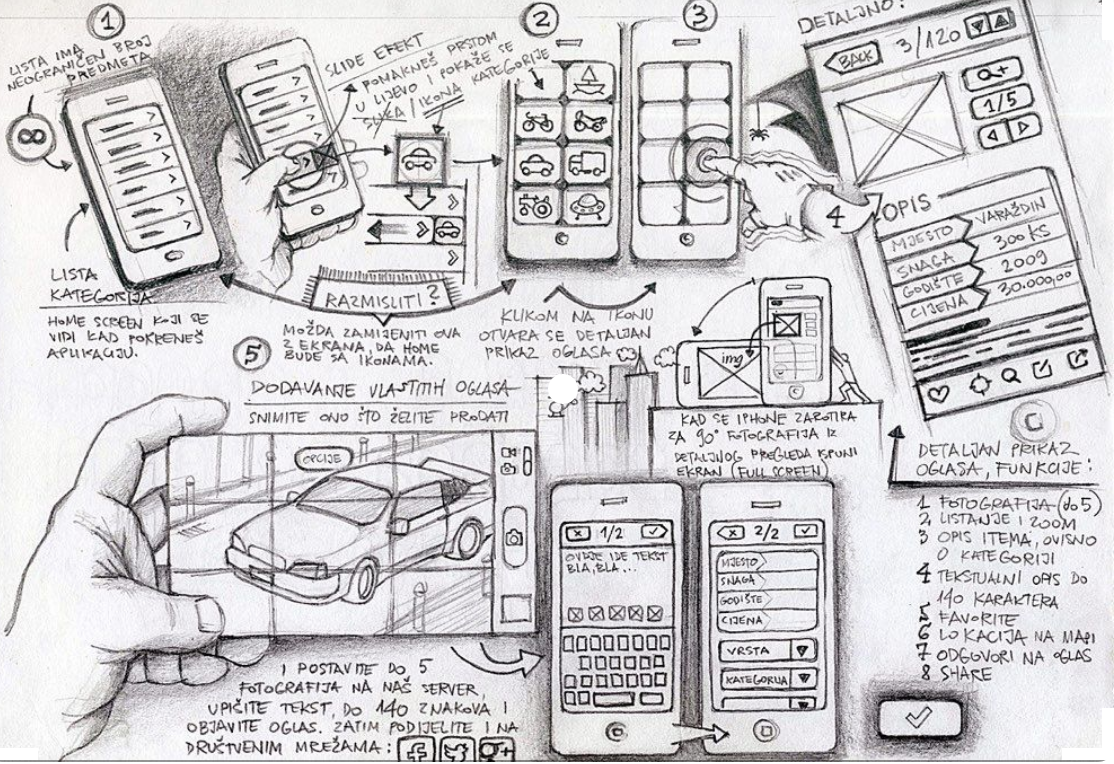 1
LISTA IMA
NEOGRANIČEN BROJ
PREDMETA
∞
LISTA
KATEGORIJA
HOME SCREEN KOJI SE
VIDI KAD POKRENEŠ
APLIKACIJU.
SLIDE EFEKT
POMAKNEŠ PRSTOM
U LIJEVO I POKAŽE SE
SLIKA / IKONA
KATEGORIJE
RAZMISLITI?
MOŽDA ZAMIJENITI OVA
2 EKRANA, DA HOME
BUDE SA IKONAMA.
2
3
KLIKOM NA IKONU
OTVARA SE DETALJAN
PRIKAZ OGLASA
DETALJNO:
BACK
3/120
1/5
4
OPIS
MJESTO VARAŽDIN
SNAGA 300 KS
GODIŠTE 2009
CIJENA 30.000,00
img
KAD SE IPHONE ZAROTIRA
ZA 90° FOTOGRAFIJA IZ
DETALJNOG PREGLEDA ISPUNI
EKRAN (FULL SCREEN)
DETALJAN PRIKAZ
OGLASA, FUNKCIJE:
1 FOTOGRAFIJA (do 5)
2 LISTANJE I ZOOM
3 OPIS ITEMA, OVISNO
O KATEGORIJI
4 TEKSTUALNI OPIS DO
140 KARAKTERA
5 FAVORITE
6 LOKACIJA NA MAPI
7 ODGOVORI NA OGLAS
8 SHARE
5
DODAVANJE VLASTITIH OGLASA
SNIMITE ONO ŠTO ŽELITE PRODATI
OPCIJE
I POSTAVITE DO 5
FOTOGRAFIJA NA NAŠ SERVER,
UPIŠITE TEKST, DO 140 ZNAKOVA I
OBJAVITE OGLAS. ZATIM PODIJELITE I NA
DRUŠTVENIM MREŽAMA:
1/2
OVDJE IDE TEKST
BLA, BLA...
2/2
MJESTO
SNAGA
GODIŠTE
CIJENA
VRSTA
KATEGORIJA